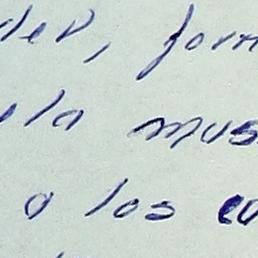 der, form
ela mus
a los co